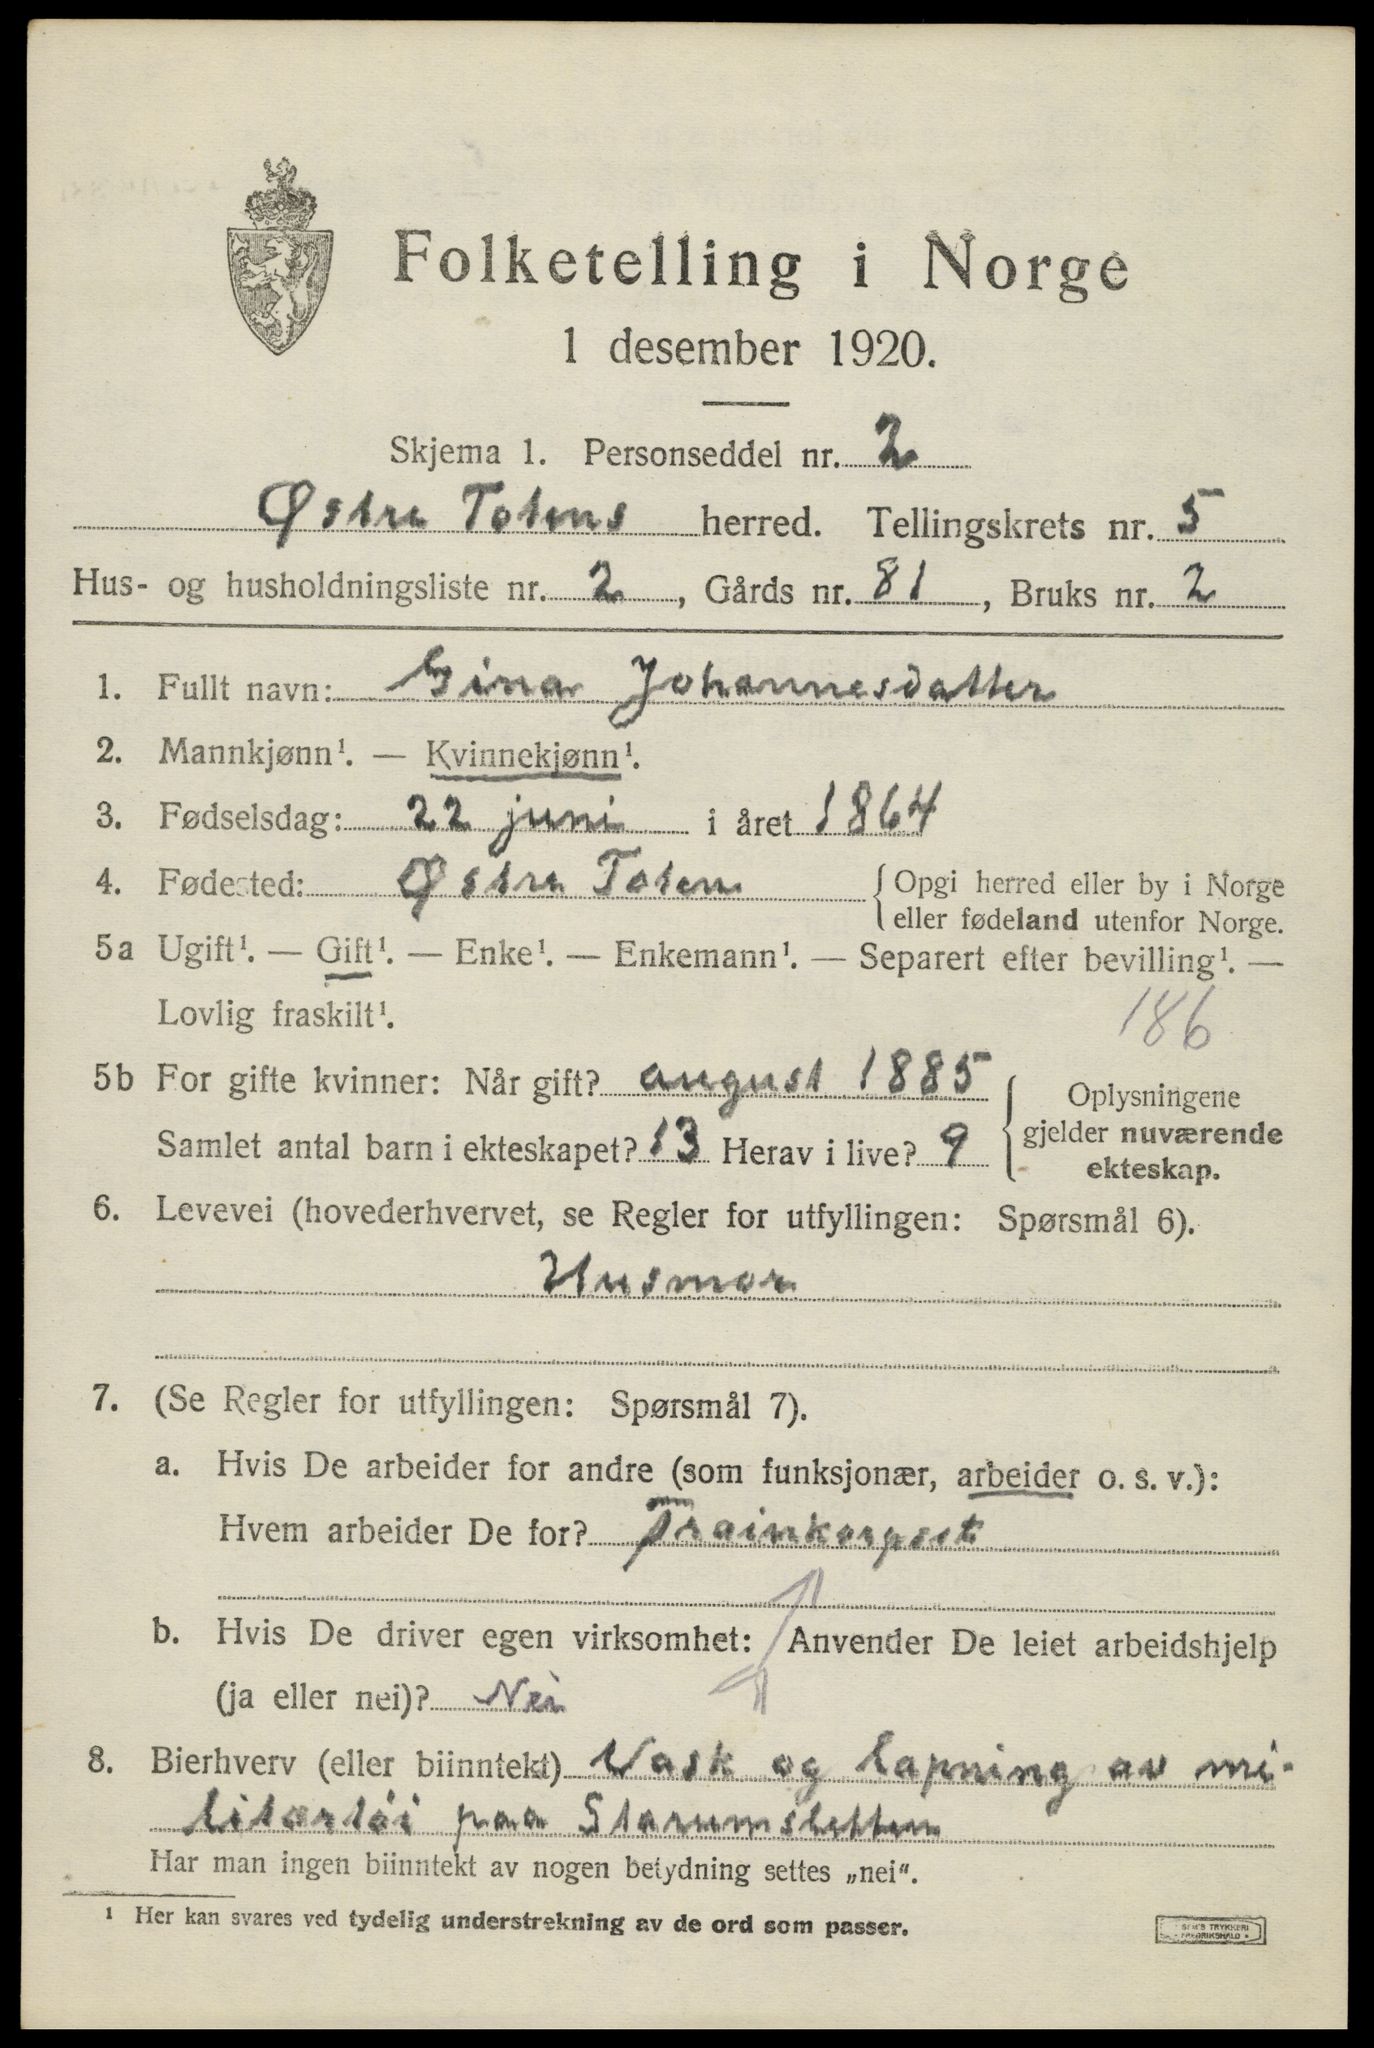 Folketelling i Norge
1 desember 1920.
Skjema 1. Personseddel nr. 2
Østre Totens herred. Tellingskrets nr. 5
Hus- og husholdningsliste nr. 2, Gårds nr. 81, Bruks nr. 2
1. Fullt navn: Gina Johannesdatter
2. Mannkjønn¹. — Kvinnekjønn¹.
3. Fødselsdag: 22 juni i året 1864
4. Fødested: Østre Toten {Opgi herred eller by i Norge
eller fødeland utenfor Norge.
5a Ugift¹. — Gift¹. — Enke¹. — Enkemann¹. — Separert efter bevilling¹. —
Lovlig fraskilt¹.
186
5b For gifte kvinner: Når gift? august 1885
Samlet antal barn i ekteskapet? 13 Herav i live? 9
{Oplysningene
gjelder nuværende
ekteskap.
6. Levevei (hovederhvervet, se Regler for utfyllingen: Spørsmål 6).
Husmor
7. (Se Regler for utfyllingen: Spørsmål 7).
a. Hvis De arbeider for andre (som funksjonær, arbeider o. s. v.):
Hvem arbeider De for? Trainkorpset
b. Hvis De driver egen virksomhet: Anvender De leiet arbeidshjelp
(ja eller nei)? Nei
8. Bierhverv (eller biinntekt) Vask og lapning av mi-
litærtøi paa Starumsletten
Har man ingen biinntekt av nogen betydning settes „nei“.
¹ Her kan svares ved tydelig understrekning av de ord som passer.
SEM'S TRYKKERI
FREDRIKSHALD